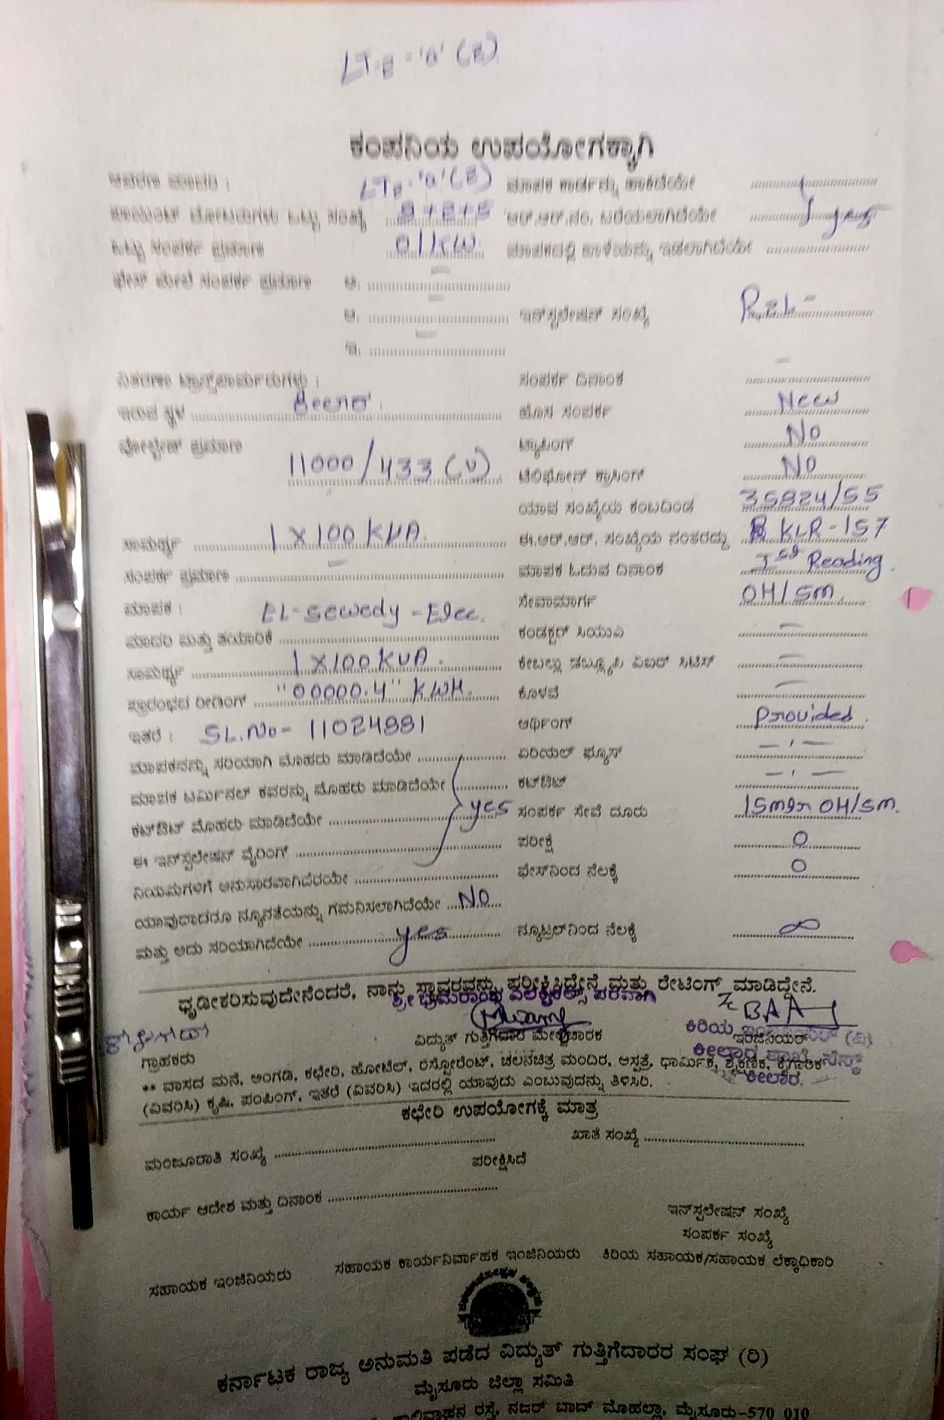 LT2-'a'(B)
ಕಂಪನಿಯ ಉಪಯೋಗಕ್ಕಾಗಿ
LT2-'a'(B) ಮಾಪಕ ಕಾರ್ಡನ್ನು ಹಾಕಿದೆಯೇ
ಒಟ್ಟು ಸಂಖ್ಯೆ ಆರ್.ಆರ್.ನಂ. ಬರೆಯಲಾಗಿದೆಯೇ yes
ಒಟ್ಟು ಸಂಪರ್ಕ ಪ್ರಮಾಣ 01KW ಮಾಪಕದಲ್ಲಿ ಹಾಳೆಯನ್ನು ಇಡಲಾಗಿದೆಯೇ
ಫೇಸ್ ಮೇಲೆ ಸಂಪರ್ಕ ಪ್ರಮಾಣ ಅ. –
ಆ. – ಇನ್‌ಸ್ಟಲೇಷನ್ ಸಂಖ್ಯೆ
ಇ. –
ವಿತರಣಾ ಟ್ರಾನ್ಸ್‌ಫಾರ್ಮರುಗಳು : ಸಂಪರ್ಕ ದಿನಾಂಕ –
ಇರುವ ಸ್ಥಳ ಕೀಲಾರ ಹೊಸ ಸಂಪರ್ಕ New
ವೋಲ್ಟೇಜ್ ಪ್ರಮಾಣ ಟ್ಯಾಪಿಂಗ್ No
11000/433 (V) ಟೆಲಿಫೋನ್ ಕ್ರಾಸಿಂಗ್ No
ಯಾವ ಸಂಖ್ಯೆಯ ಕಂಬದಿಂಡ 35824/55
ಸಾಮರ್ಥ್ಯ 1 X 100 KVA. ಈ.ಆರ್.ಆರ್. ಸಂಖ್ಯೆಯ ನಂತರದ್ದು KLR-157
ಸಂಪರ್ಕ ಪ್ರಮಾಣ – ಮಾಪಕ ಓದುವ ದಿನಾಂಕ Ist Reading
ಮಾಪಕ : EL-Sewedy-Elec. ಸೇವಾಮಾರ್ಗ OH/sm.
ಮಾದರಿ ಮತ್ತು ತಯಾರಿಕೆ ಕಂಡಕ್ಟರ್ ಸಿಯುವಿ –
ಸಾಮರ್ಥ್ಯ 1 X 100 KVA. –
ಪ್ರಾರಂಭದ ರೀಡಿಂಗ್ "00000.4" KWH. ಕೊಳವೆ –
ಇತರೆ : SL.No- 11024881 ಅರ್ಥಿಂಗ್ Provided.
ಮಾಪಕವನ್ನು ಸರಿಯಾಗಿ ಮೊಹರು ಮಾಡಿದೆಯೇ ಏರಿಯಲ್ ಫ್ಯೂಸ್ – ' –
ಮಾಪಕ ಟರ್ಮಿನಲ್ ಕವರನ್ನು ಮೊಹರು ಮಾಡಿದೆಯೇ ಕಟ್‌ಔಟ್ – ' –
ಕಟ್‌ಔಟ್ ಮೊಹರು ಮಾಡಿದೆಯೇ yes ಸಂಪರ್ಕ ಸೇವೆ ದೂರು 15mtr OH/sm.
ಈ ಇನ್‌ಸ್ಟಲೇಷನ್ ವೈರಿಂಗ್ ಪರೀಕ್ಷೆ 0
ನಿಯಮಗಳಿಗೆ ಅನುಸಾರವಾಗಿವೆರೆಯೇ ಫೇಸ್‌ನಿಂದ ನೆಲಕ್ಕೆ 0
ಯಾವುದಾದರೂ ನ್ಯೂನತೆಯನ್ನು ಗಮನಿಸಲಾಗಿದೆಯೇ No
ಮತ್ತು ಅದು ಸರಿಯಾಗಿದೆಯೇ yes ನ್ಯೂಟ್ರಲ್‌ನಿಂದ ನೆಲಕ್ಕೆ ∞
ಧೃಡೀಕರಿಸುವುದೇನೆಂದರೆ, ನಾನು ಸ್ಥಾವರವನ್ನು ಪರೀಕ್ಷಿಸಿದ್ದೇನೆ ಮತ್ತು ರೇಟಿಂಗ್ ಮಾಡಿದ್ದೇನೆ.
ಶ್ರೀ ಭ್ರಮರಾಂಭ ಎಲೆಕ್ಟ್ರಿಕಲ್ಸ್ ಪರವಾಗಿ
ಗ್ರಾಹಕರು ವಿದ್ಯುತ್ ಗುತ್ತಿಗೆದಾರ ಮೇಲ್ವಿಚಾರಕ ಇಂಜಿನಿಯರ್
** ವಾಸದ ಮನೆ, ಅಂಗಡಿ, ಕಛೇರಿ, ಹೋಟೆಲ್, ರೆಸ್ಟೋರೆಂಟ್, ಚಲನಚಿತ್ರ ಮಂದಿರ, ಆಸ್ಪತ್ರೆ, ಧಾರ್ಮಿಕ, ಶೈಕ್ಷಣಿಕ, ಕೈಗಾರಿಕೆ
(ವಿವರಿಸಿ) ಕೃಷಿ, ಪಂಪಿಂಗ್, ಇತರೆ (ವಿವರಿಸಿ) ಇದರಲ್ಲಿ ಯಾವುದು ಎಂಬುವುದನ್ನು ತಿಳಿಸಿರಿ. ಕೀಲಾರ.
ಕಛೇರಿ ಉಪಯೋಗಕ್ಕೆ ಮಾತ್ರ
ಮಂಜೂರಾತಿ ಸಂಖ್ಯೆ ಖಾತೆ ಸಂಖ್ಯೆ
ಪರೀಕ್ಷಿಸಿದೆ
ಕಾರ್ಯ ಆದೇಶ ಮತ್ತು ದಿನಾಂಕ
ಇನ್‌ಸ್ಟಲೇಷನ್ ಸಂಖ್ಯೆ
ಸಂಪರ್ಕ ಸಂಖ್ಯೆ
ಸಹಾಯಕ ಇಂಜಿನಿಯರು ಸಹಾಯಕ ಕಾರ್ಯನಿರ್ವಾಹಕ ಇಂಜಿನಿಯರು ಕಿರಿಯ ಸಹಾಯಕ/ಸಹಾಯಕ ಲೆಕ್ಕಾಧಿಕಾರಿ
ಕರ್ನಾಟಕ ರಾಜ್ಯ ಅನುಮತಿ ಪಡೆದ ವಿದ್ಯುತ್ ಗುತ್ತಿಗೆದಾರರ ಸಂಘ (ರಿ)
ಮೈಸೂರು ಜಿಲ್ಲಾ ಸಮಿತಿ
ರಸ್ತೆ, ನಜರ್ ಬಾದ್ ಮೊಹಲ್ಲಾ, ಮೈಸೂರು-570 010